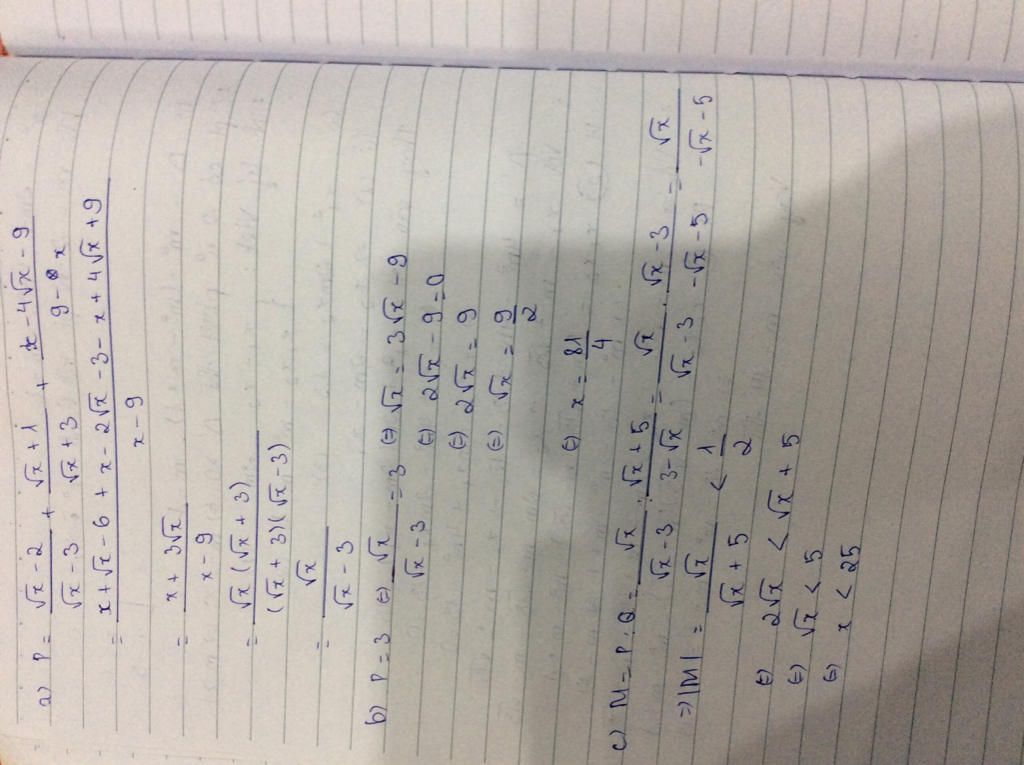 a) P = (√x - 2)/(√x - 3) + (√x + 1)/(√x + 3) + (x - 4√x - 9)/(9 - x)
= (x + √x - 6 + x - 2√x - 3 - x + 4√x + 9)/(x - 9)
= (x + 3√x)/(x - 9)
= (√x (√x + 3))/((√x + 3)(√x - 3))
= √x/(√x - 3)
b) P = 3 (=) √x/(√x - 3) = 3 (=) √x = 3√x - 9
(=) 2√x - 9 = 0
(=) 2√x = 9
(=) √x = 9/2
(=) x = 81/4
c) M = P : Q = √x/(√x - 3) : (√x + 5)/(3 - √x) = √x/(√x - 3) . (√x - 3)/(-√x - 5) = √x/(-√x - 5)
=> |M| = √x/(√x + 5) < 1/2
(=) 2√x < √x + 5
(=) √x < 5
(=) x < 25